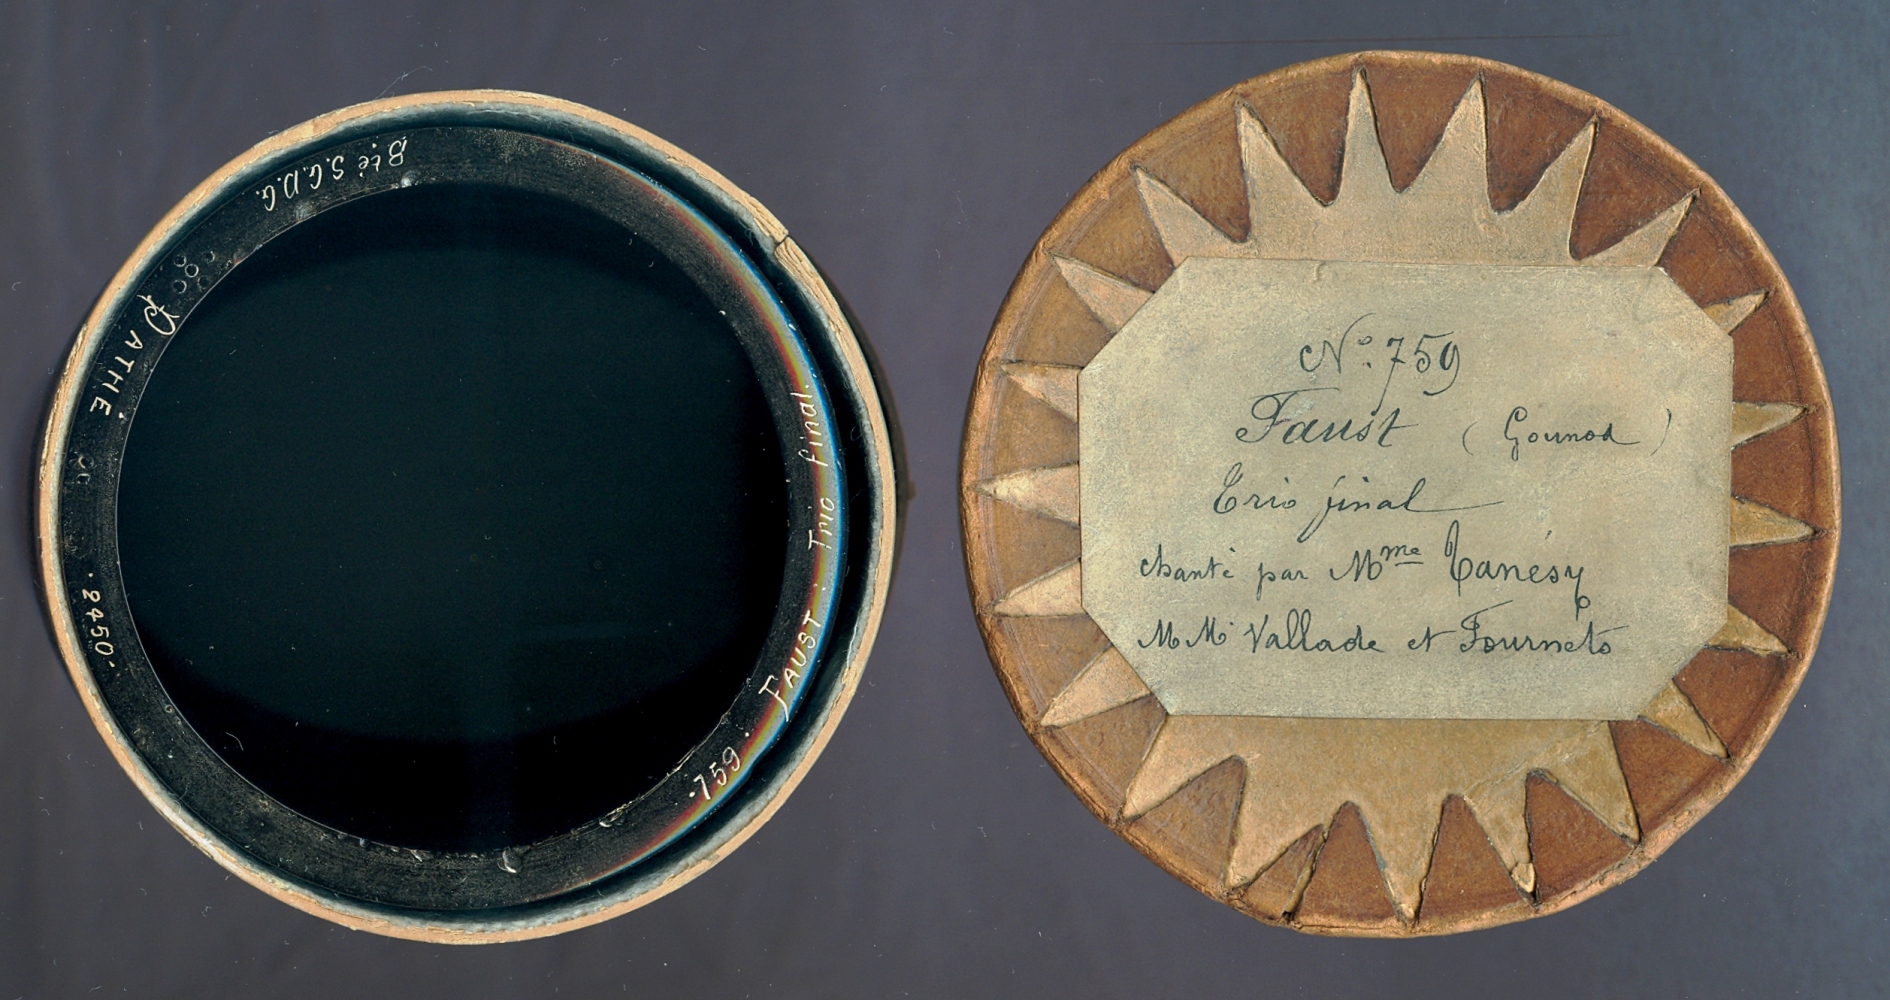 Bté S.G.D.G.
PATHÉ
· 2450 ·
· 759 · FAUST : Trio final.
Nº. 759
Faust ( Gounod )
Trio final
chanté par Mme Tanésy
MM Vallade et Fournets